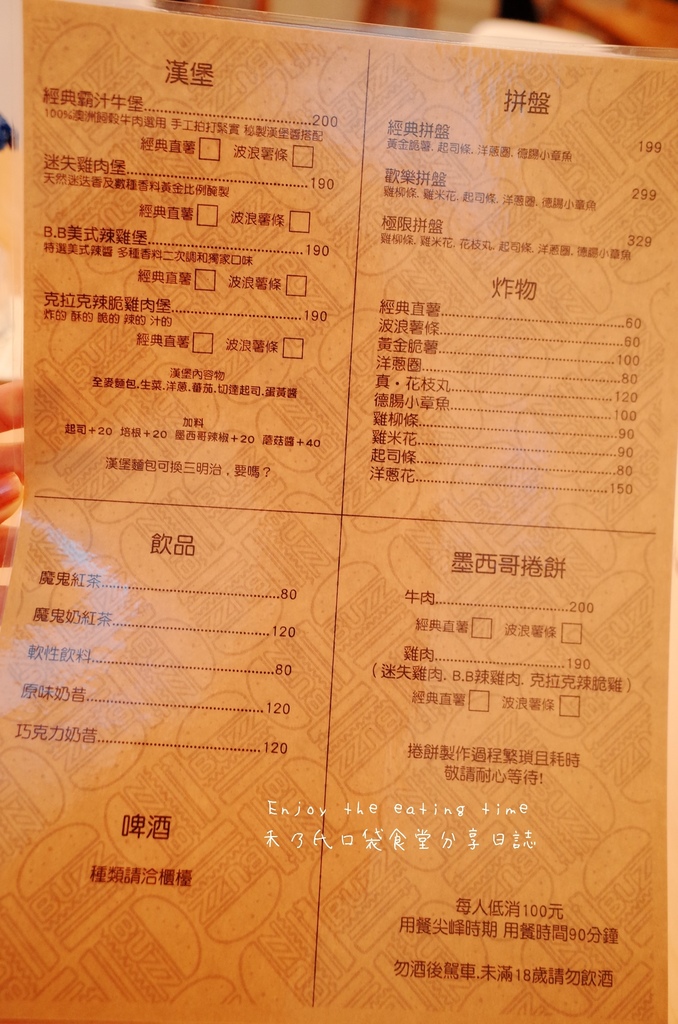 漢堡
經典霸汁牛堡 200
100%澳洲穀飼牛肉選用 手工拍打緊實 秘製漢堡醬搭配
經典直薯□ 波浪薯條□
迷失雞肉堡 190
天然迷迭香及數種香料黃金比例醃製
經典直薯□ 波浪薯條□
B.B美式辣雞堡 190
特選美式辣醬 多種香料二次調和獨家口味
經典直薯□ 波浪薯條□
克拉克辣脆雞肉堡 190
炸的 酥的 脆的 辣的 汁的
經典直薯□ 波浪薯條□
漢堡內容物
全麥麵包.生菜.洋蔥.番茄.切達起司.蛋黃醬
加料
起司+20 培根+20 墨西哥辣椒+20 蘑菇醬+40
漢堡麵包可換三明治,要嗎?
拼盤
經典拼盤 199
黃金脆薯. 起司條. 洋蔥圈. 德腸小章魚
歡樂拼盤 299
雞柳條. 雞米花. 起司條. 洋蔥圈. 德腸小章魚
極限拼盤 329
雞柳條. 雞米花. 花枝丸. 起司條. 洋蔥圈. 德腸小章魚
炸物
經典直薯 60
波浪薯條 60
黃金脆薯 100
洋蔥圈 80
真・花枝丸 120
德腸小章魚 100
雞柳條 90
雞米花 90
起司條 80
洋蔥花 150
飲品
魔鬼紅茶 80
魔鬼奶紅茶 120
軟性飲料 80
原味奶昔 120
巧克力奶昔 120
啤酒
種類請洽櫃檯
墨西哥捲餅
牛肉 200
經典直薯□ 波浪薯條□
雞肉 190
(迷失雞肉. B.B辣雞肉. 克拉克辣脆雞)
經典直薯□ 波浪薯條□
捲餅製作過程繁瑣且耗時
敬請耐心等待!
Enjoy the eating time
禾乃氏口袋食堂分享日誌
每人低消100元
用餐尖峰時期 用餐時間90分鐘
勿酒後駕車.未滿18歲請勿飲酒